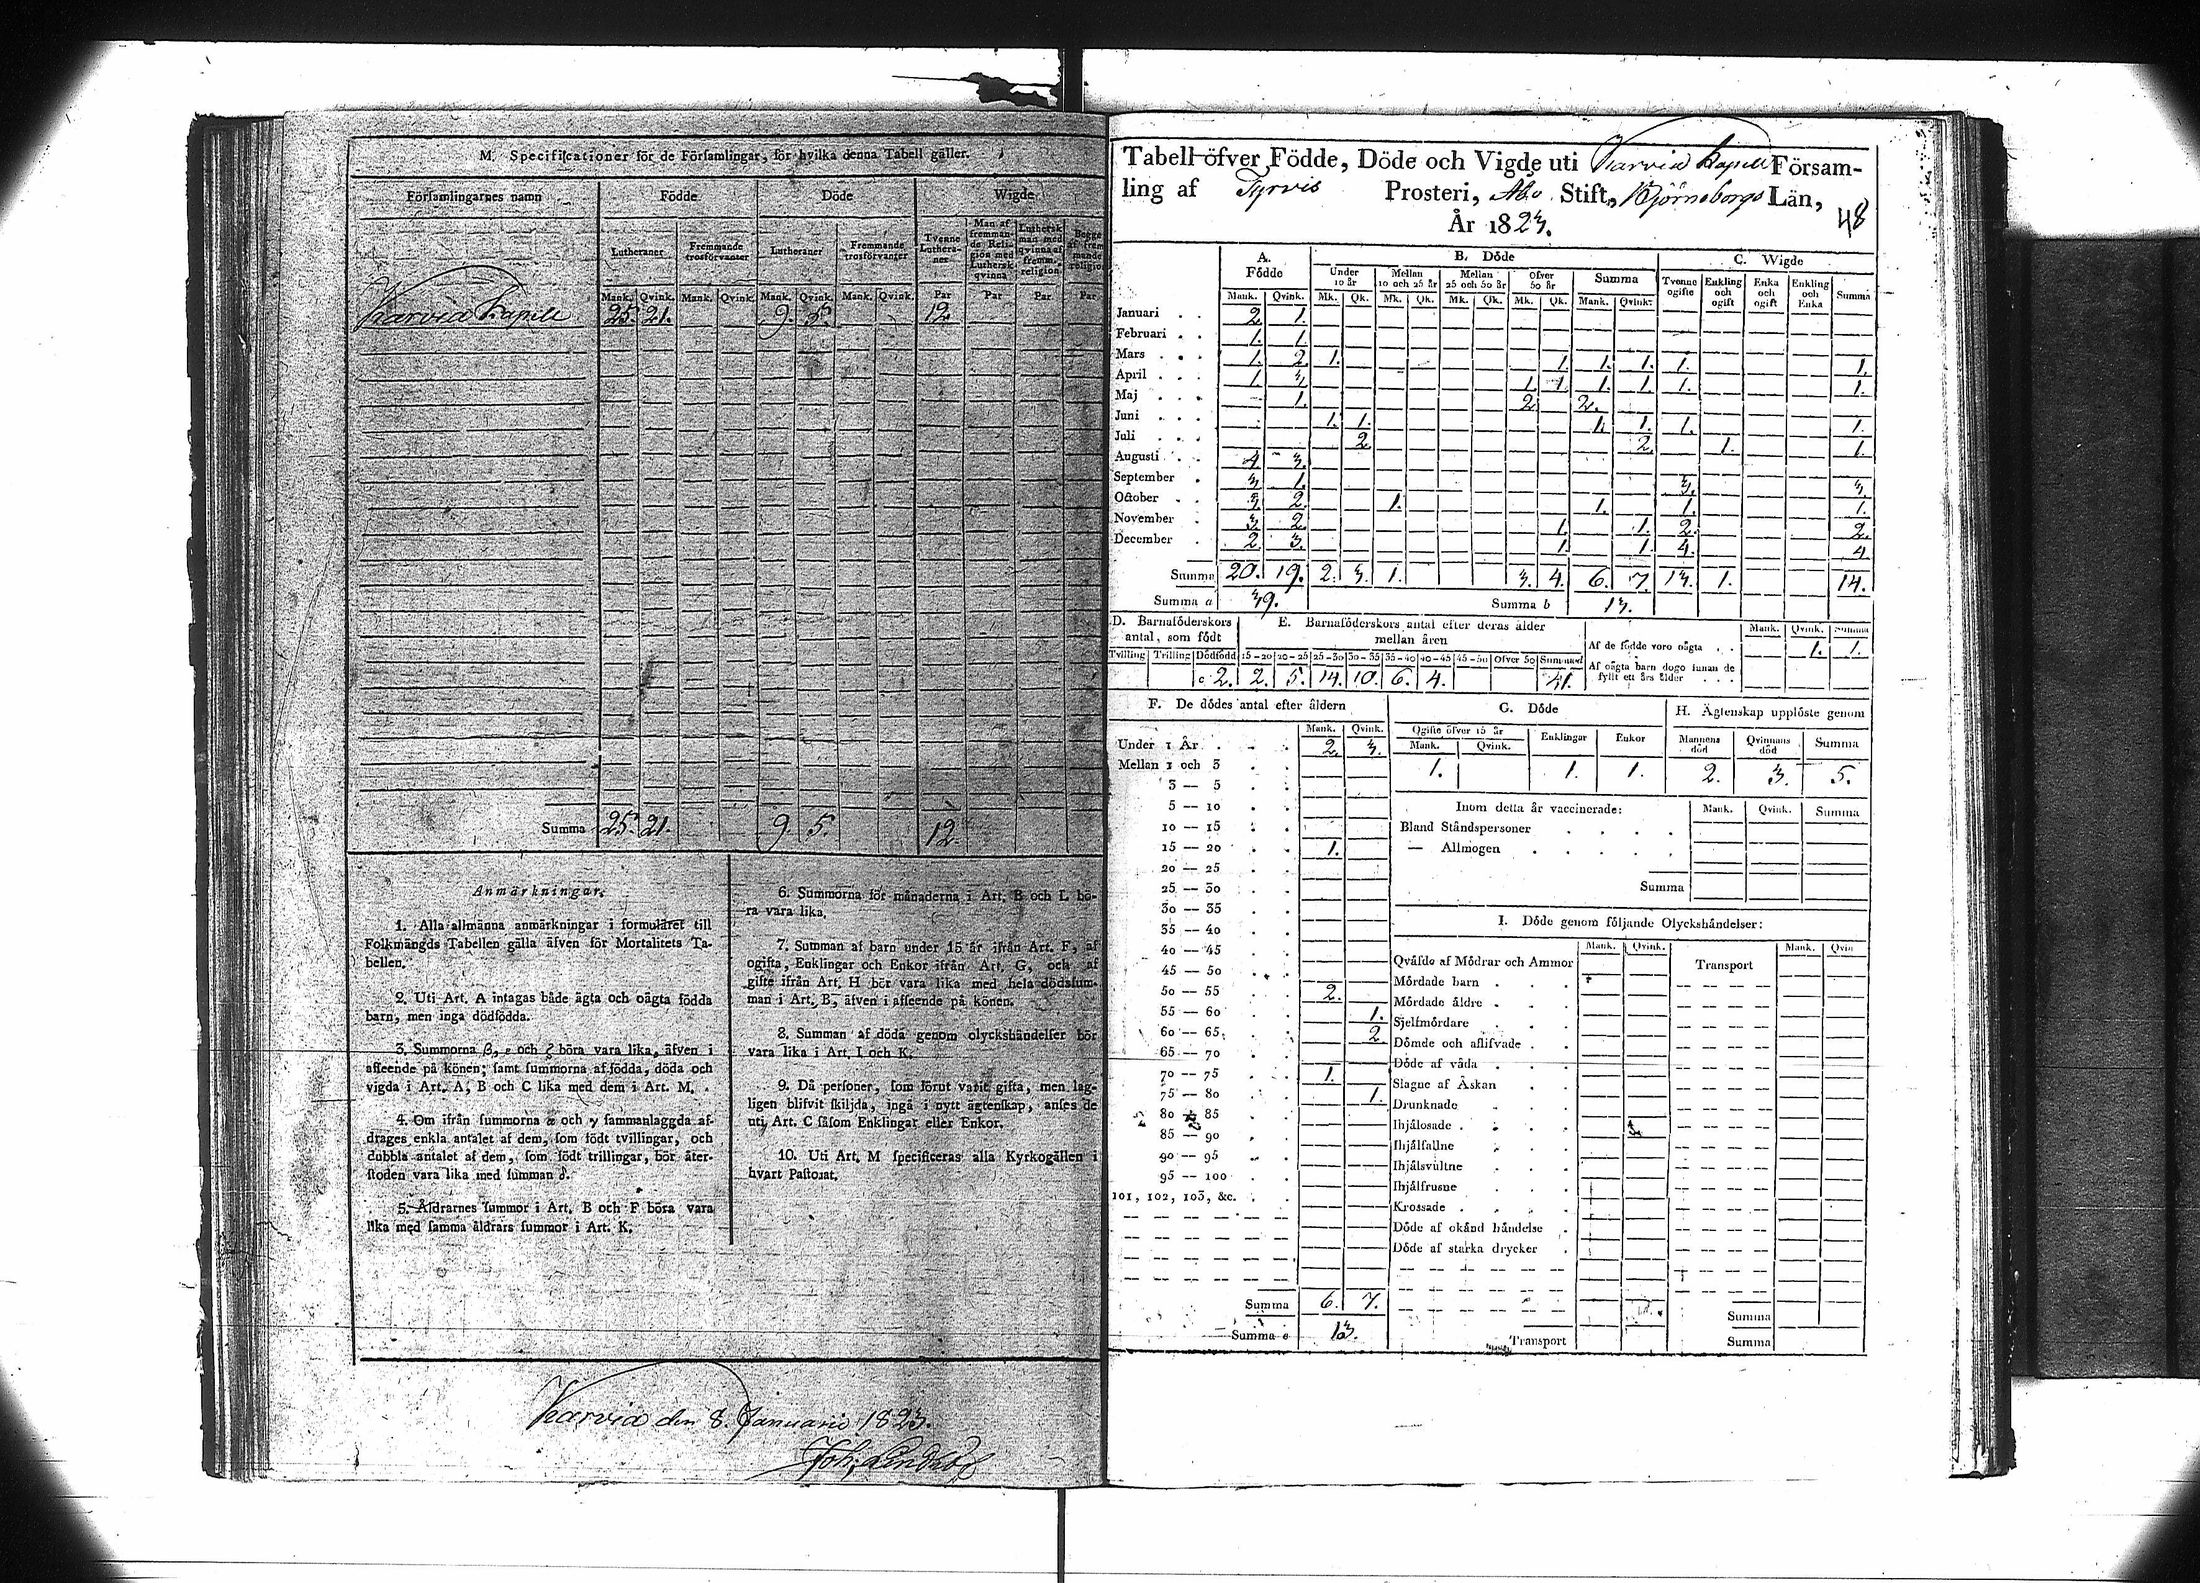 M. Specificationer för de Församlingar, för hvilka denna Tabell gäller.
Församlingarnes namn Födde Döde Wigde
Lutheraner Fremmande trosförvanter Lutheraner Fremmande trosförvanter Tvenne Lutheraner Man af fremmande Religion med Luthersk qvinna Luthersk man med qvinna af fremm. religion Begge af fremmande religion
Mank. Qvink. Mank. Qvink. Mank. Qvink. Mank. Qvink. Par Par Par Par
Karvia Kapell 25. 21. 9. 5. 12.
Summa 25. 21. 9. 5. 12.
Anmärkningar.
1. Alla allmänna anmärkningar i formuläret till
Folkmängds Tabellen gälla äfven för Mortalitets Ta-
bellen.
2. Uti Art. A intagas både ägta och oägta födda
barn, men inga dödfödda.
3. Summorna β, ε och ζ böra vara lika, äfven i
afseende på könen; samt summorna af födda, döda och
vigda i Art. A, B och C lika med dem i Art. M.
4. Om ifrån summorna α och γ sammanlaggda af-
drages enkla antalet af dem, som födt tvillingar, och
dubbla antalet af dem, som födt trillingar, bör åter-
stoden vara lika med summan δ.
5. Åldrarnes summor i Art. B och F böra vara
lika med samma åldrars summor i Art. K.
6. Summorna för månaderna i Art. B och L bö-
ra vara lika.
7. Summan af barn under 15 år ifrån Art. F, af
ogifta, Enklingar och Enkor ifrån Art. G, och af
gifte ifrån Art. H bör vara lika med hela dödssum-
man i Art. B, äfven i afseende på könen.
8. Summan af döda genom olyckshändelser bör
vara lika i Art. I och K.
9. Då personer, som förut varit gifta, men lag-
ligen blifvit skiljda, ingå i nytt ägtenskap, anses de
uti Art. C såsom Enklingar eller Enkor.
10. Uti Art. M specificeras alla Kyrkogällen i
hvart Pastorat.
Karvia den 8. Januarii 1823.
Joh.
Tabell öfver Födde, Döde och Vigde uti Karvia Kapell Försam-
ling af Tyrvis Prosteri, Åbo Stift, Björneborgs Län,
År 1823.
48
A. Födde B. Döde C. Wigde
Under 10 år Mellan 10 och 25 år Mellan 25 och 50 år Öfver 50 år Summa Tvenne ogifte Enkling och ogift Enka och ogift Enkling och Enka Summa
Mank. Qvink. Mk. Qk. Mk. Qk. Mk. Qk. Mk. Qk. Mank. Qvink.
Januari 2. 1.
Februari 1. 1.
Mars 1. 2. 1. 1. 1. 1. 1. 1.
April 1. 3. 1. 1. 1. 1. 1. 1.
Maj 1. 2. 2.
Juni 1. 1. 1. 1. 1. 1.
Juli 2. 2. 1. 1.
Augusti 4. 3.
September 3. 1. 3. 3.
October 3. 2. 1. 1. 1. 1.
November 3. 2. 1. 1. 2. 2.
December 2. 3. 1. 1. 4. 4.
Summa 20. 19. 2. 3. 1. 3. 4. 6. 7. 13. 1. 14.
Summa a 39. Summa b 13.
D. Barnaföderskors antal, som födt
Tvilling Trilling Dödfödd
c 2.
E. Barnaföderskors antal efter deras ålder mellan åren
15-20 20-25 25-30 30-35 35-40 40-45 45-50 Öfver 50 Summa d
2. 5. 14. 10. 6. 4. 41.
Mank. Qvink. Summa
Af de födde voro oägta 1. 1.
Af oägta barn dogo innan de
fyllt ett års ålder
F. De dödes antal efter åldern
Mank. Qvink.
Under 1 År 2. 3.
Mellan 1 och 3
3 — 5
5 — 10
10 — 15
15 — 20 1.
20 — 25
25 — 30
30 — 35
35 — 40
40 — 45
45 — 50
50 — 55 2.
55 — 60 1.
60 — 65 2.
65 — 70
70 — 75 1.
75 — 80 1.
80 — 85
85 — 90
90 — 95
95 — 100
101, 102, 103, &c.
Summa 6. 7.
Summa e 13.
G. Döde
Ogifte öfver 15 år Enklingar Enkor
Mank. Qvink.
1. 1. 1.
H. Ägtenskap upplöste genom
Mannens död Qvinnans död Summa
2. 3. 5.
Inom detta år vaccinerade: Mank. Qvink. Summa
Bland Ståndspersoner
— Allmogen
Summa
I. Döde genom följande Olyckshändelser:
Mank. Qvink. Mank. Qvin
Qväfde af Mödrar och Ammor Transport
Mördade barn
Mördade äldre
Sjelfmördare
Dömde och aflifvade
Döde af våda
Slagne af Åskan
Drunknade
Ihjälosade
Ihjälfallne
Ihjälsvultne
Ihjälfrusne
Krossade
Döde af okänd händelse
Döde af starka drycker
Summa
Transport Summa